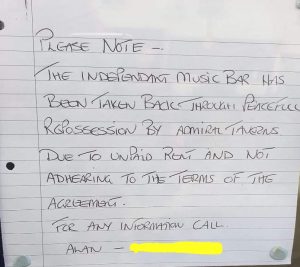 PLEASE NOTE -
THE INDEPENDANT MUSIC BAR HAS
BEEN TAKEN BACK THROUGH PEACEFUL
REPOSSESSION BY ADMIRAL TAVERNS
DUE TO UNPAID RENT AND NOT
ADHEARING TO THE TERMS OF THE
AGREEMENT.
FOR ANY INFORMATION CALL.
ALAN -